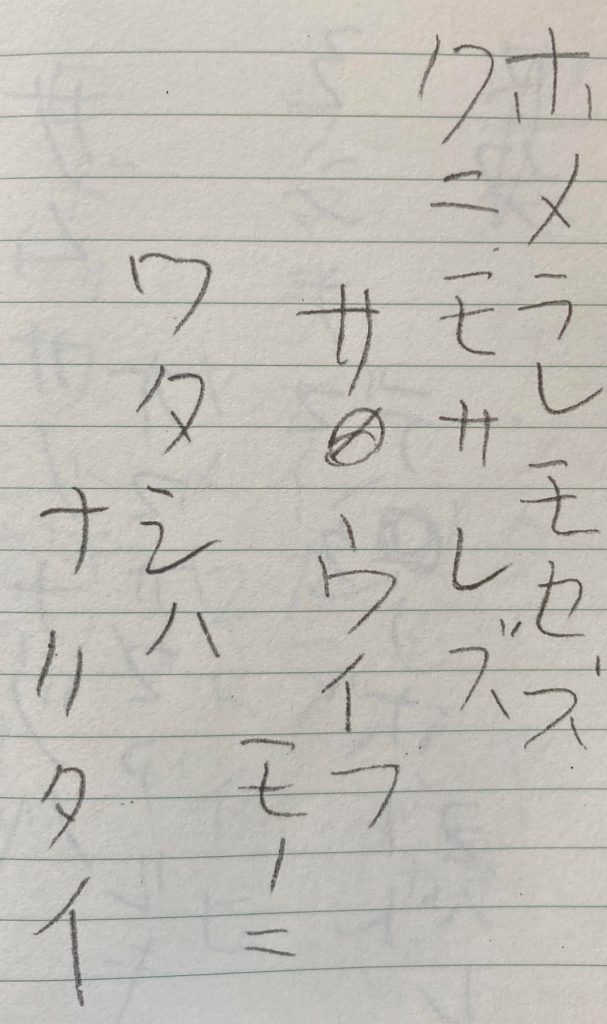 ホメラレモセズ
クニモサレズ
サウイフ
モノニ
ワタシハ
ナリタイ